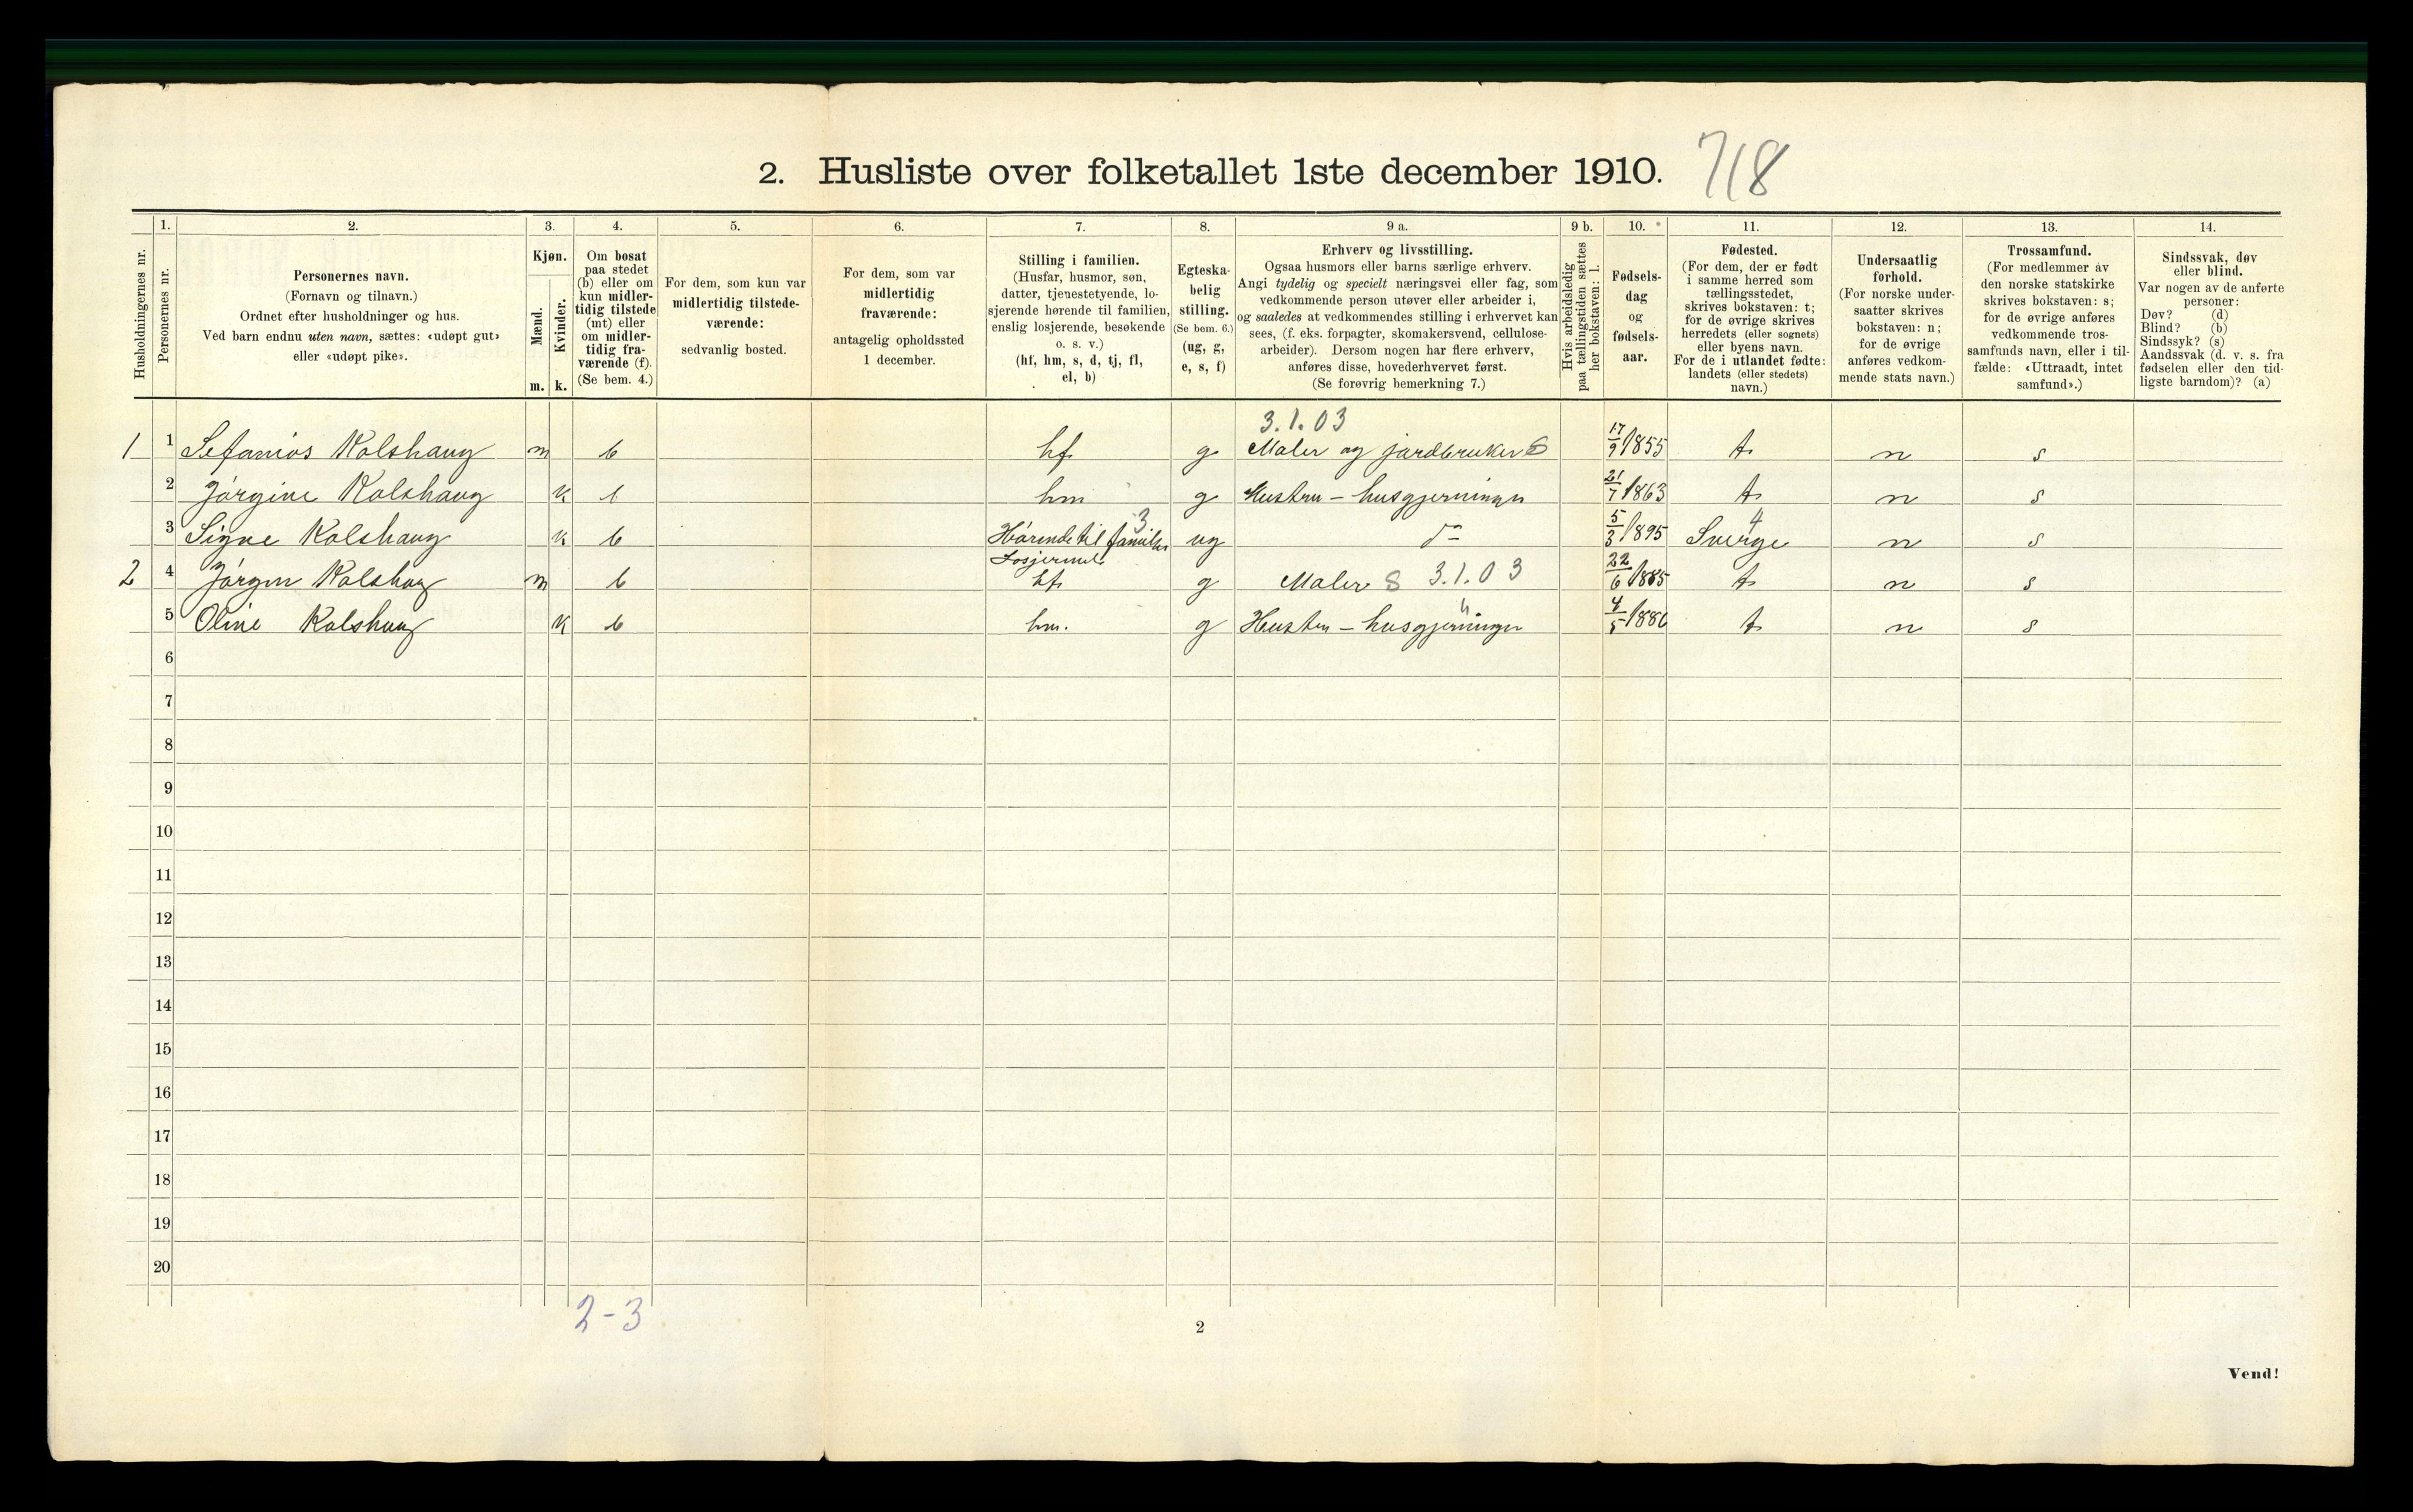 2. Husliste over folketallet 1ste december 1910. 718
Husholdningernes nr.
1. Personernes nr.
2. Personernes navn.
(Fornavn og tilnavn.)
Ordnet efter husholdninger og hus.
Ved barn endnu uten navn, sættes: «udøpt gut»
eller «udøpt pike».
3. Kjøn.
Mænd. m.
Kvinder. k.
4. Om bosat
paa stedet
(b) eller om
kun midler-
tidig tilstede
(mt) eller
om midler-
tidig fra-
værende (f).
(Se bem. 4.)
5. For dem, som kun var
midlertidig tilstede-
værende:
sedvanlig bosted.
6. For dem, som var
midlertidig
fraværende:
antagelig opholdssted
1 december.
7. Stilling i familien.
(Husfar, husmor, søn,
datter, tjenestetyende, lo-
sjerende hørende til familien,
enslig losjerende, besøkende
o. s. v.)
(hf, hm, s, d, tj, fl,
el, b)
8. Egteska-
belig
stilling.
(Se bem. 6.)
(ug, g,
e, s, f)
9 a. Erhverv og livsstilling.
Ogsaa husmors eller barns særlige erhverv.
Angi tydelig og specielt næringsvei eller fag, som
vedkommende person utøver eller arbeider i,
og saaledes at vedkommendes stilling i erhvervet kan
sees, (f. eks. forpagter, skomakersvend, cellulose-
arbeider). Dersom nogen har flere erhverv,
anføres disse, hovederhvervet først.
(Se forøvrig bemerkning 7.)
9 b. Hvis arbeidsledig
paa tællingstiden sættes
her bokstaven: l.
10. Fødsels-
dag
og
fødsels-
aar.
11. Fødested.
(For dem, der er født
i samme herred som
tællingsstedet,
skrives bokstaven: t;
for de øvrige skrives
herredets (eller sognets)
eller byens navn.
For de i utlandet fødte:
landets (eller stedets)
navn.)
12. Undersaatlig
forhold.
(For norske under-
saatter skrives
bokstaven: n;
for de øvrige
anføres vedkom-
mende stats navn.)
13. Trossamfund.
(For medlemmer av
den norske statskirke
skrives bokstaven: s;
for de øvrige anføres
vedkommende tros-
samfunds navn, eller i til-
fælde: «Uttraadt, intet
samfund».)
14. Sindssvak, døv
eller blind.
Var nogen av de anførte
personer:
Døv? (d)
Blind? (b)
Sindssyk? (s)
Aandssvak (d. v. s. fra
fødselen eller den tid-
ligste barndom)? (a)
3.1.03
1 1 Sefanias Kolshaug m b hf g Maler og jardbruker S 17/9 1855 t n s
2 Jørgine Kolshaug k b hm g Hustru - husgjerninger 21/7 1863 t n s
3 4
3 Signe Kolshaug k b Hørende til familien ug 5/3 1895 Sverge n s
Losjerende
2 4 Jørgen Kolshaug m b hf g Maler S 3.1.03 22/6 1885 t n s
5 Oline Kolshaug k b hm. g Hustru - husgjerninger 4/5 1886 t n s
6
7
8
9
10
11
12
13
14
15
16
17
18
19
20
2-3
2
Vend!